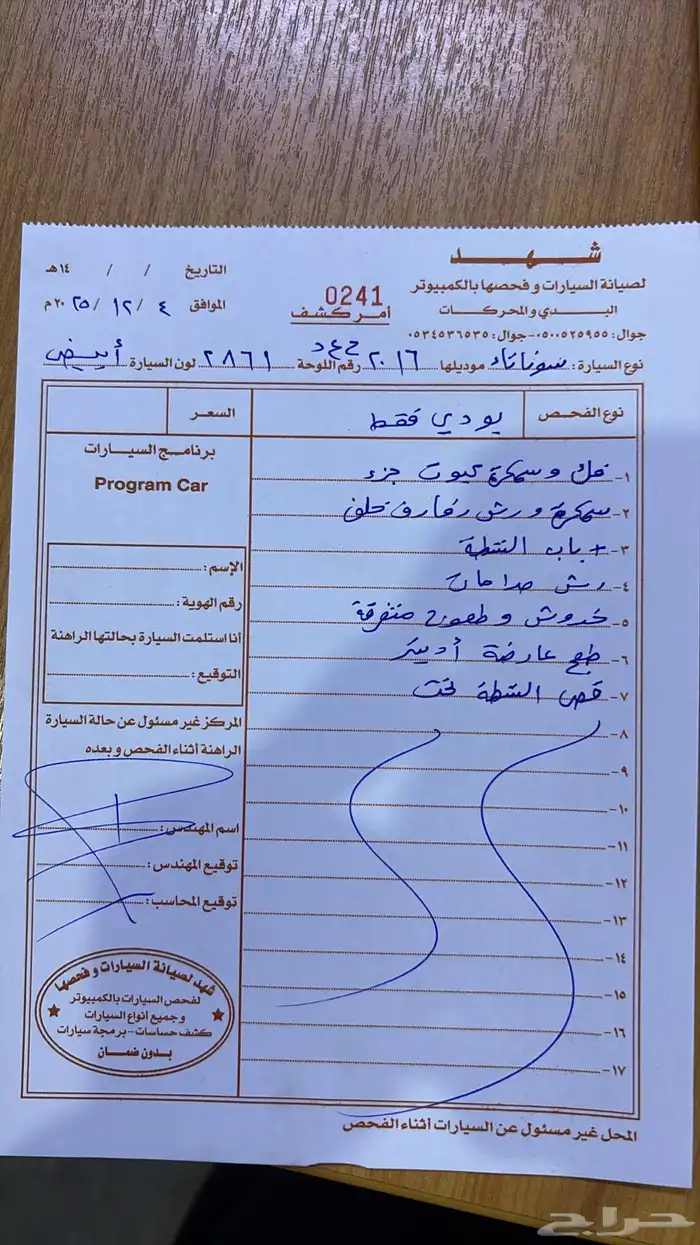 شهد
لصيانة السيارات وفحصها بالكمبيوتر
البدي والمحركات
جوال: ٠٥٠٠٥٢٥٩٥٥ - جوال: ٠٥٣٤٥٣٦٥٣٥
0241
أمر كشف
التاريخ / / ١٤هـ
الموافق ٤ / ١٢ / ٢٠٢٥م
نوع السيارة: سوناتا موديلها ٢٠١٦ رقم اللوحة ح ع د ٢٨٦١ لون السيارة أبيض
نوع الفحص بودي فقط السعر
١- فك وسمكرة كبوت جزء
٢- سمكرة ورش رفارف خلف
٣- + باب الشنطة
٤- رش صدامات
٥- خدوش وطعوج متفرقة
٦- طعج عارضة أديتر
٧- قص الشنطة تحت
٨-
٩-
١٠-
١١-
١٢-
١٣-
١٤-
١٥-
١٦-
١٧-
برنامج السيارات
Program Car
الإسم:
رقم الهوية:
أنا استلمت السيارة بحالتها الراهنة
التوقيع:
المركز غير مسئول عن حالة السيارة
الراهنة أثناء الفحص وبعده
اسم المهندس:
توقيع المهندس:
توقيع المحاسب:
شهد لصيانة السيارات وفحصها
لفحص السيارات بالكمبيوتر
وجميع أنواع السيارات
كشف حساسات - برمجة سيارات
بدون ضمان
المحل غير مسئول عن السيارات أثناء الفحص
حراج